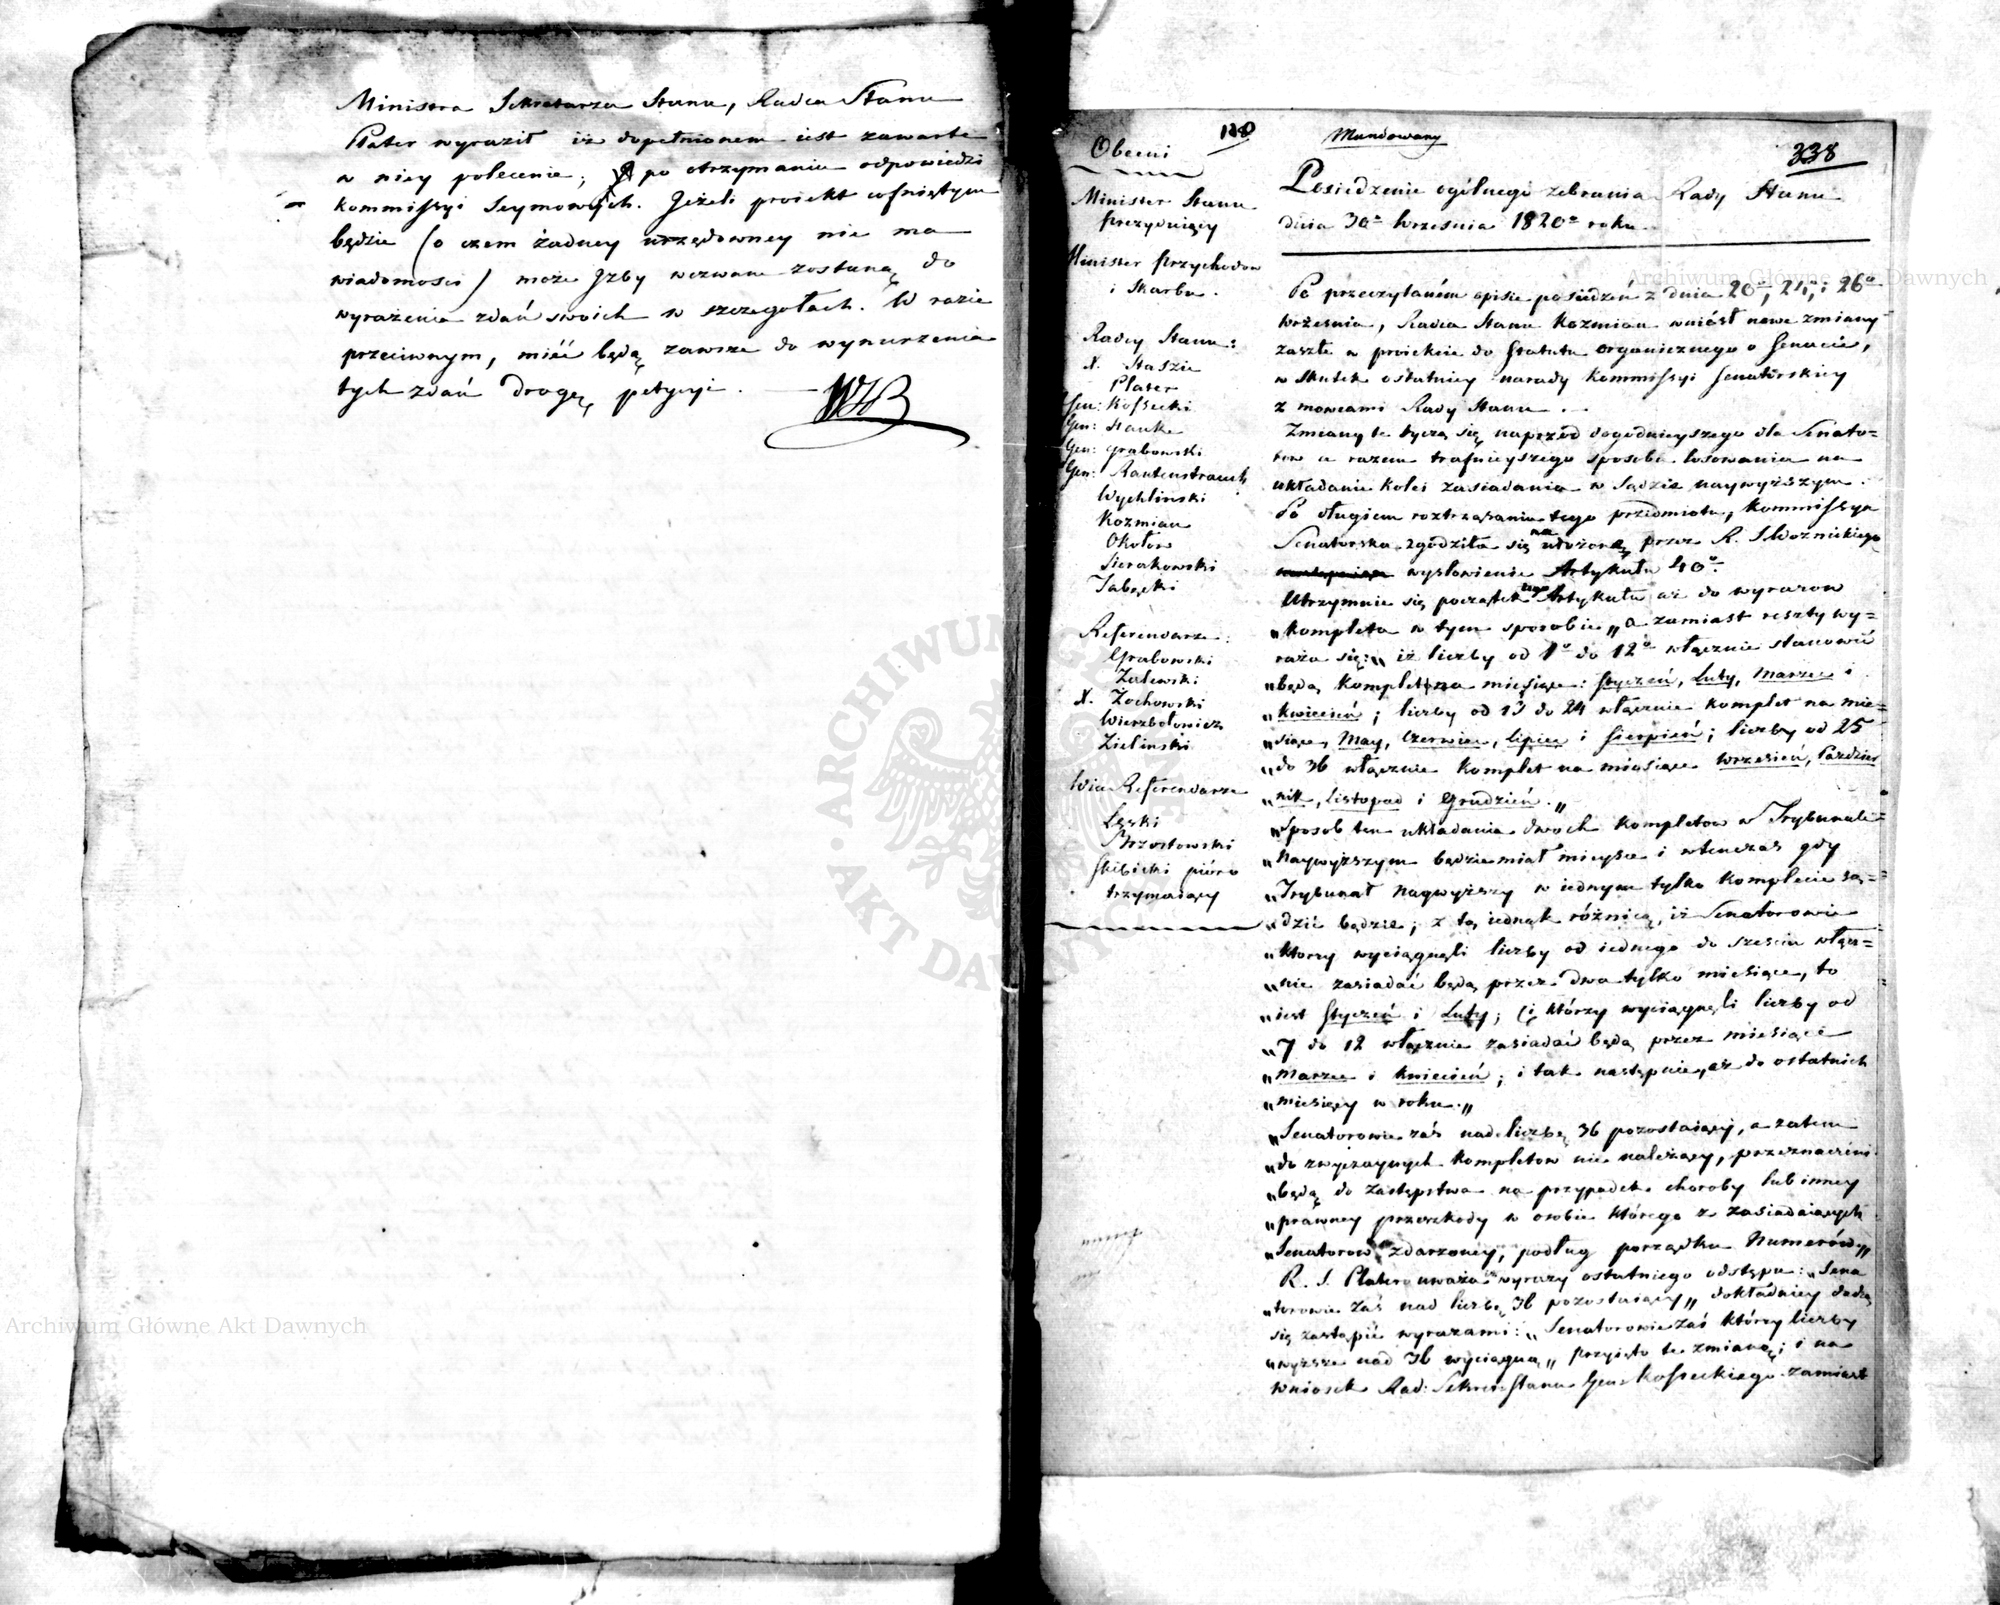 Ministra Sekretarza Stanu, Radca Stanu
Plater wyraził iż dopełnionem iest zawarte
w niey polecenie; po otrzymaniu odpowiedzi
Kommissyi Seymowych. Jeżeli proiekt cofniętym
będzie (o czem żadney urzędowney nie ma
wiadomości) może Jzby wezwane zostaną do
wyrażenia zdań swoich w szczegołach. W razie
przeciwnym, mieć będą zawsze do wynurzenia
tych zdań drogę petycyi.
Mundowany
338
Obecni
Minister Stanu
Prezyduiący
Minister Przychodow
i Skarbu.
Radcy Stanu:
X. Staszic
Plater
Gen: Kossecki
Gen: Hauke
Gen: Grabowski
Gen: Rautenstrauch
Wychliński
Kozmian
Okołow
Sierakowski
Referendarze:
Grabowski
Zalewski
X. Zochowski
Wierzbołowicz
Zielinski
Vice Referendarze
Łęski
Brzostowski
Skibicki pióro
trzymaiący
Posiedzenie ogólnego zebrania Rady Stanu
dnia 30º Września 1820º roku.
Po przeczytaném opisie posiedzeń z dnia 20º, 24º, i 26º
Września, Radca Stanu Kozmian wniósł nowe zmiany
zaszłe w proiekcie do Statutu Organicznego o Senacie,
w skutek ostatniey narady Kommissyi Senatorskiey
z mowcami Rady Stanu.
Zmiany te tyczą się naprzód dogodnieyszego dla Senato=
row a razem trafnieyszego sposobu losowania na
układanie kolei zasiadania w Sądzie naywyższym.
Po długiem roztrząsaniu tego przedmiotu, Kommissya
Senatorska zgodziła się na ułożone przez R. S. Woznickiego
wysłowienie Artykułu 40º.
Utrzymuie się początek tego Artykułu aż do wyrazow
„Kompleta w tym sposobie„ a zamiast reszty wy=
raża się: „iż liczby od 1º do 12º włącznie stanowić
„będą komplet na miesiące: Styczeń, Luty, Marzec i
„Kwiecień; liczby od 13 do 24 włącznie komplet na mie=
„siące, May, Czerwiec, Lipiec i Sierpień; liczby od 25
„do 36 włącznie komplet na miesiące Wrzesień, Pazdzier
„nik, Listopad i Grudzień.„
„Sposob ten układania dwoch kompletow w Trybunale
„Naywyższym będzie miał mieysce i wtenczas gdy
„Trybunał Naywyższy w iednym tylko komplecie są=
„dzić będzie; z tą iednak różnicą, iż Senatorowie
„ktorzy wyciągnęli liczby od iednego do sześciu włącz=
„nie zasiadać będą przez dwa tylko miesiące, to
„iest Styczeń i Luty; ci którzy wyciągnęli liczby od
„7 do 12 włącznie zasiadać będą przez miesiące
„Marzec i Kwiecień; i tak następnie, aż do ostatnich
„miesięcy w roku.„
„Senatorowie zaś nad liczbę 36 pozostaiący, a zatem
„do zwyczaynych kompletow nie należący, przeznaczeni
„będą do zastępstwa na przypadek choroby lub inney
„prawney przeszkody w osobie którego z zasiadaiących
„Senatorow zdarzoney, podług porządku Numerów„
R. S. Plater uważa wyrazy ostatniego odstępu: „Sena
„torowie zaś nad liczbę 36 pozostaiący„ dokładniey dadzą
się zastąpić wyrazami: „Senatorowie zaś którzy liczby
„wyższe nad 36 wyciągną„ przyięto te zmianę; i na
wniosek Rad: Sekret: Stanu Gen: Kosseckiego zamiast
Archiwum Główne Akt Dawnych
Archiwum Główne Akt Dawnych
ARCHIWUM GŁÓWNE AKT DAWNYCH